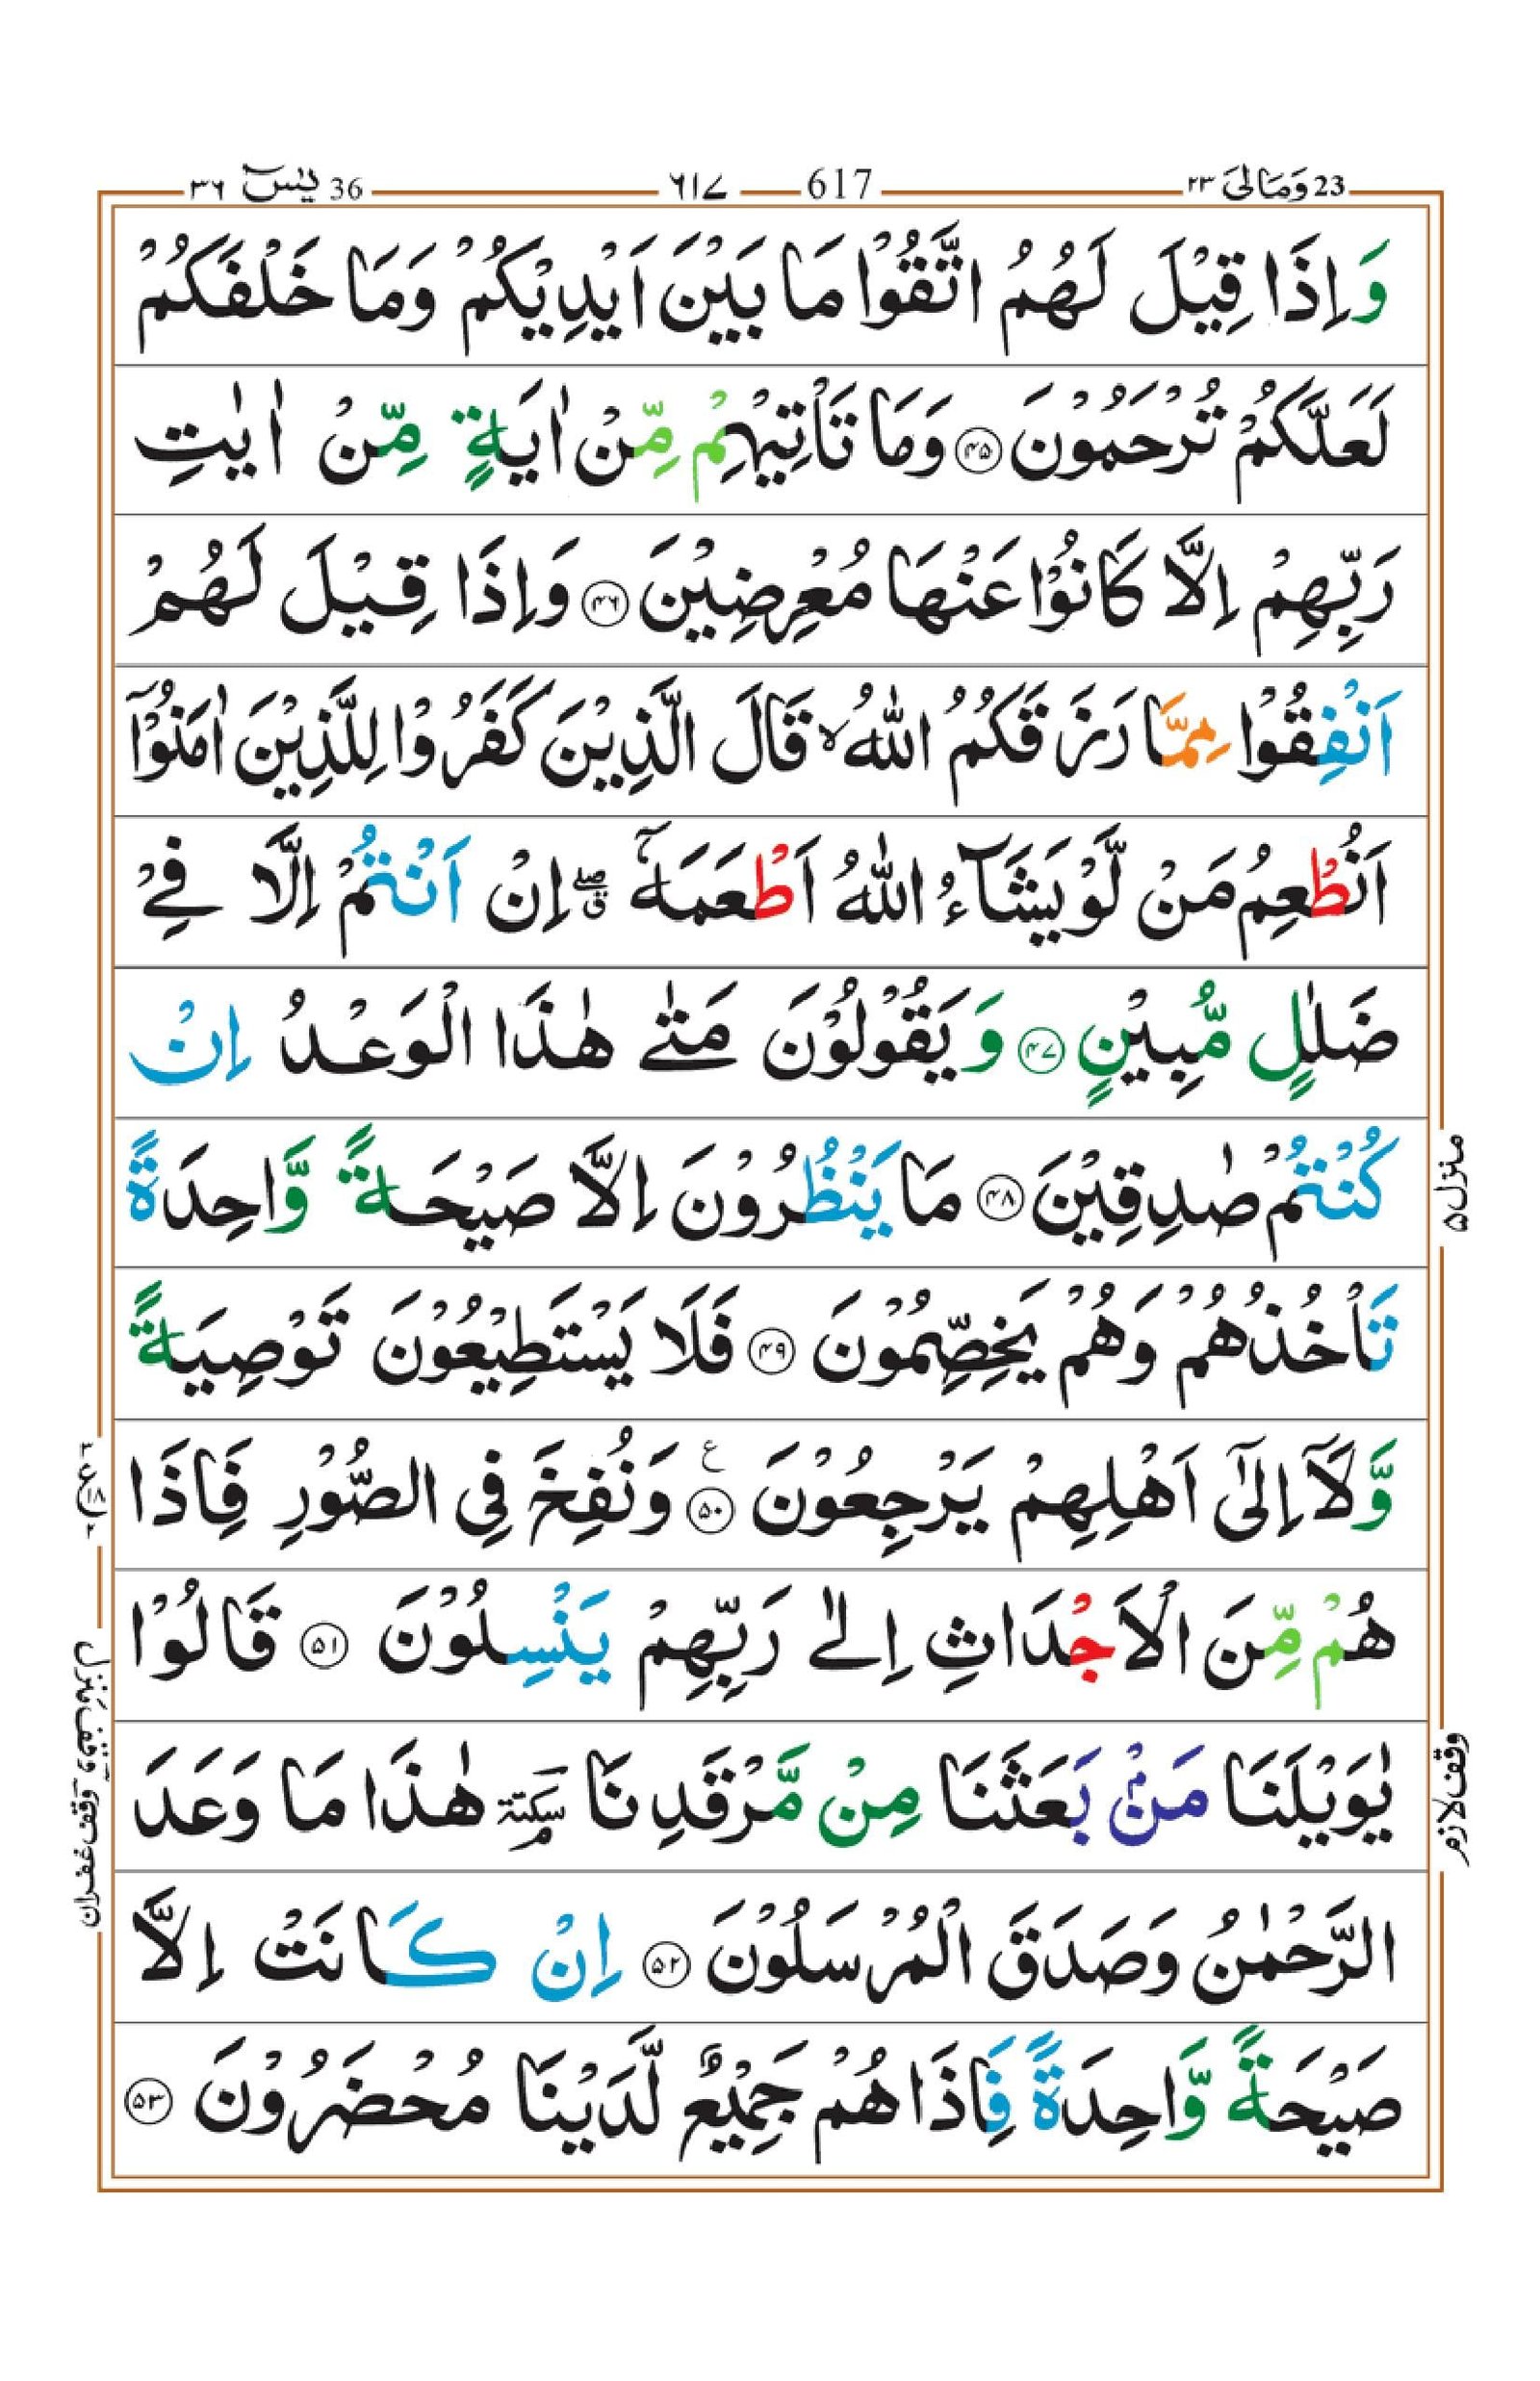 36 يٰسٓ ٣٦ 617 ٦١٧ 23 وَمَالِیَ ٢٣
وَاِذَا قِيْلَ لَهُمُ اتَّقُوْا مَا بَيْنَ اَيْدِيْكُمْ وَمَا خَلْفَكُمْ
لَعَلَّكُمْ تُرْحَمُوْنَ ﴿۴۵﴾ وَمَا تَاْتِيْهِمْ مِّنْ اٰيَةٍ مِّنْ اٰيٰتِ
رَبِّهِمْ اِلَّا كَانُوْا عَنْهَا مُعْرِضِيْنَ ﴿۴۶﴾ وَاِذَا قِيْلَ لَهُمْ
اَنْفِقُوْا مِمَّا رَزَقَكُمُ اللّٰهُ ۙ قَالَ الَّذِيْنَ كَفَرُوْا لِلَّذِيْنَ اٰمَنُوْۤا
اَنُطْعِمُ مَنْ لَّوْ يَشَآءُ اللّٰهُ اَطْعَمَهٗۤ ۖق اِنْ اَنْتُمْ اِلَّا فِيْ
ضَلٰلٍ مُّبِيْنٍ ﴿۴۷﴾ وَيَقُوْلُوْنَ مَتٰى هٰذَا الْوَعْدُ اِنْ
كُنْتُمْ صٰدِقِيْنَ ﴿۴۸﴾ مَا يَنْظُرُوْنَ اِلَّا صَيْحَةً وَّاحِدَةً
تَاْخُذُهُمْ وَهُمْ يَخِصِّمُوْنَ ﴿۴۹﴾ فَلَا يَسْتَطِيْعُوْنَ تَوْصِيَةً
وَّلَاۤ اِلٰۤى اَهْلِهِمْ يَرْجِعُوْنَ ﴿۵۰﴾ ع وَنُفِخَ فِى الصُّوْرِ فَاِذَا
هُمْ مِّنَ الْاَجْدَاثِ اِلٰى رَبِّهِمْ يَنْسِلُوْنَ ﴿۵۱﴾ قَالُوْا
يٰوَيْلَنَا مَنْۢ بَعَثَنَا مِنْ مَّرْقَدِنَا ۘ سكتة هٰذَا مَا وَعَدَ
الرَّحْمٰنُ وَصَدَقَ الْمُرْسَلُوْنَ ﴿۵۲﴾ اِنْ كَانَتْ اِلَّا
صَيْحَةً وَّاحِدَةً فَاِذَا هُمْ جَمِيْعٌ لَّدَيْنَا مُحْضَرُوْنَ ﴿۵۳﴾
منزل ۵
وقف لازم
وقف غفران